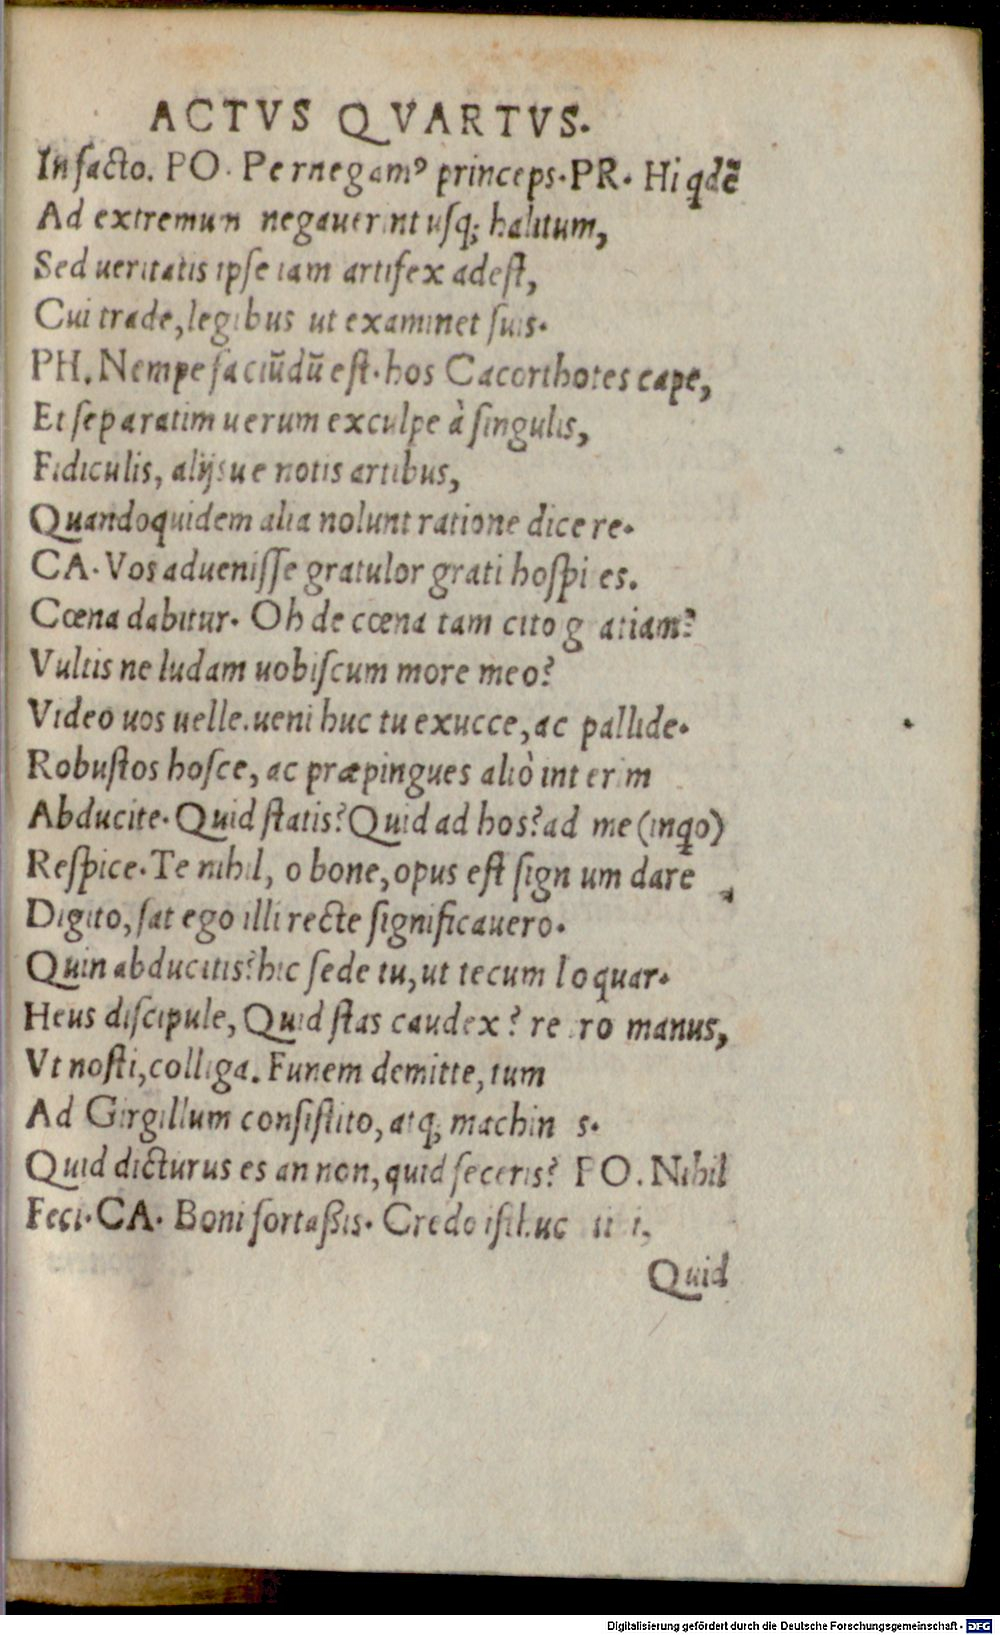 ACTVS QVARTVS.
In facto. PO. Pernegamꝰ princeps. PR. Hi qdẽ
Ad extremun negauerint usq; halitum,
Sed ueritatis ipse iam artifex adest,
Cui trade, legibus ut examinet suis.
PH. Nempe faciũdũ est. hos Cacorthotes cape,
Et separatim uerum exculpe à singulis,
Fidiculis, alijsue notis artibus,
Quandoquidem alia nolunt ratione dicere.
CA. Vos aduenisse gratulor grati
Cœna dabitur. Oh de cœna tam cito
Vultis ne ludam uobiscum more meo?
Video uos uelle. ueni huc tu exucce, ac pallide.
Robustos hosce, ac præpingues aliò interim
Abducite. Quid statis? Quid ad hos? ad me (inqo)
Respice. Te nihil, o bone, opus est signum dare
Digito, sat ego illi recte significauero.
Quin abducitis? hic sede tu, ut tecum loquar.
Heus discipule, Quid stas caudex? manus,
Vt nosti, colliga. Funem demitte, tum
Ad Girgillum consistito, atq;
Quid dicturus es an non, quid feceris? PO. Nihil
Feci. CA. Boni fortaßis. Credo
Quid
Digitalisierung gefördert durch die Deutsche Forschungsgemeinschaft - DFG